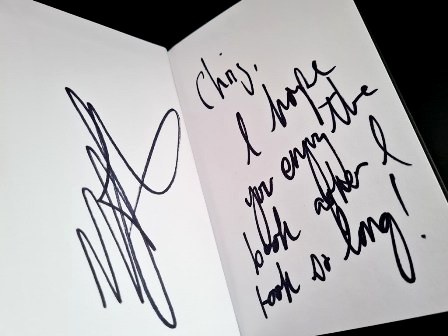 Chris,
I hope
you enjoy the
book after I
took so long!